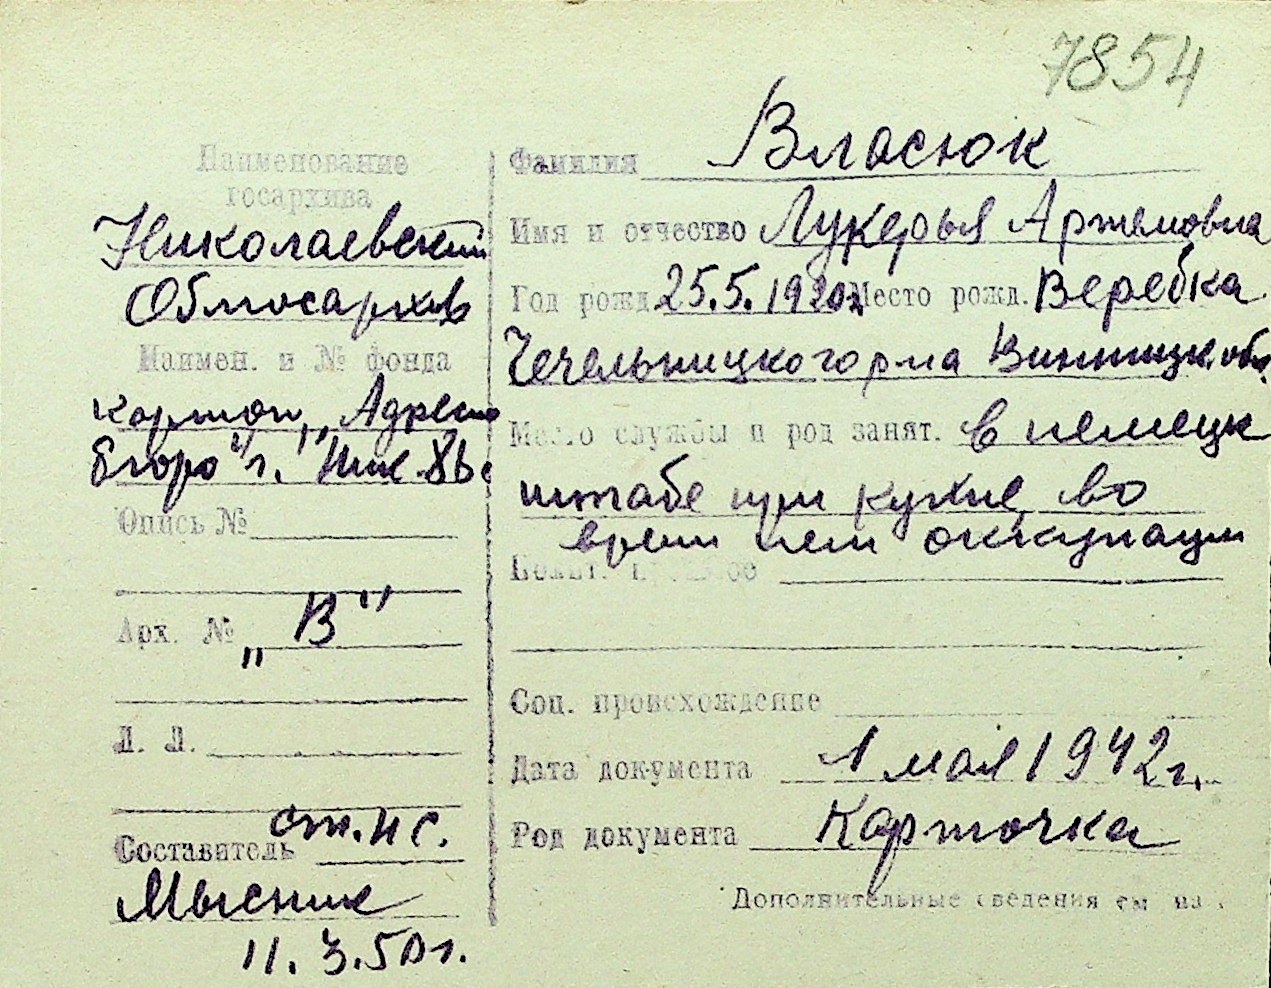 7854
Наименование
госархива
Николаевский
Облгосархив
Наимен. и № фонда
картот. „Адресно
бюро" г. Ник.
Опись №
Арх. № „В"
Л. Л.
Составитель ст. н с.
11.3.50 г.
Фамилия Власюк
Имя и отчество Лукерья Артемовна
Год рожд. 25.5.1920 г. Место рожд. Веребка
Чечельницкого р-на Винницк. обл.
Место службы и род занят. в немецк
штабе при кухне во
время нем оккупации
Соц. происхождение
Дата документа 1 мая 1942 г.
Род документа Карточка
Дополнительные сведения см на